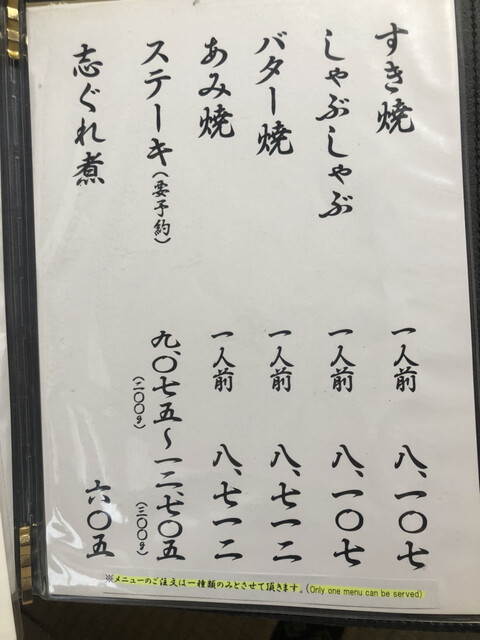 すき焼 一人前 八、一〇七
しゃぶしゃぶ 一人前 八、一〇七
バター焼 一人前 八、七一二
あみ焼 一人前 八、七一二
ステーキ(要予約) 九、〇七五～一二、七〇五
(二〇〇g) (三〇〇g)
志ぐれ煮 六〇五
※メニューのご注文は一種類のみとさせて頂きます。(Only one menu can be served)